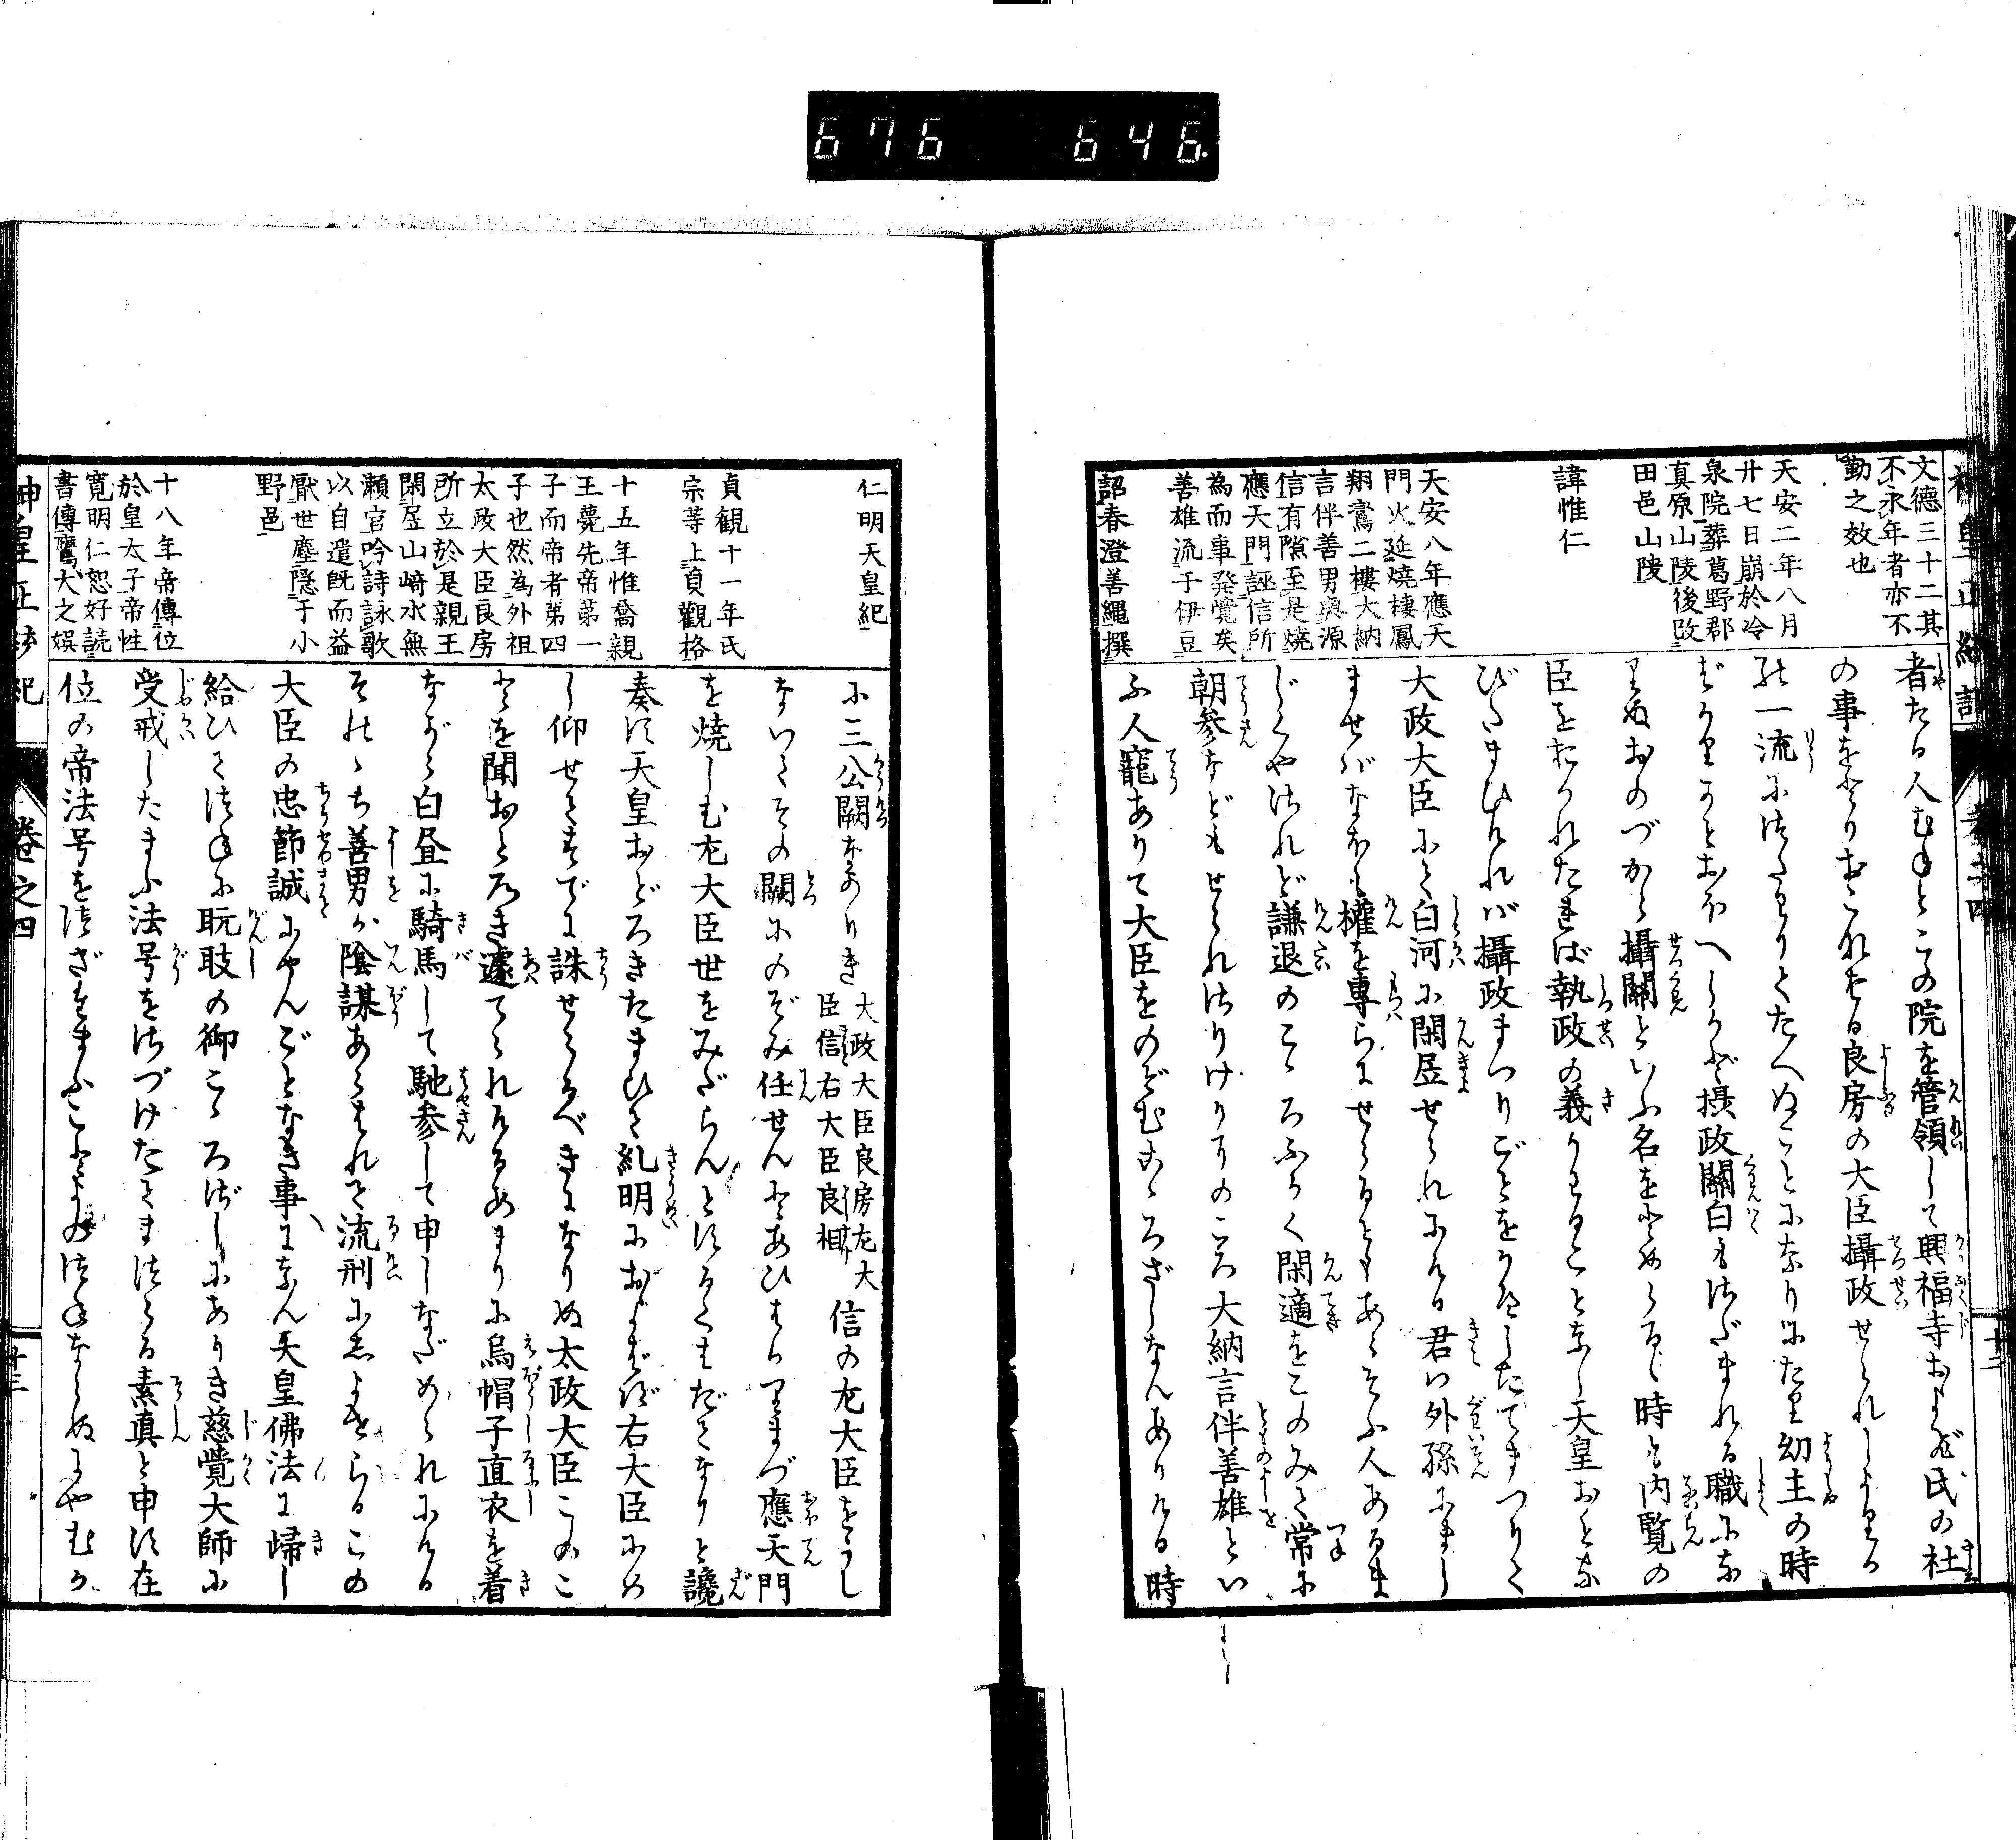 676 646.
神皇正統記
巻之四
十二
文徳三十二其
不永年者亦不
勤之效也
天安二年八月
廿七日崩於冷
泉院葬葛野郡
真原山陵後改
田邑山陵
諱惟仁
天安八年應天
門火延燒棲鳳
翔鸞二樓大納
言伴善男與源
信有隙至是燒
應天門誣信所
為而事發覺矣
善雄流于伊豆
詔春澄善縄撰
者たる人むねとこの院を管領して興福寺および氏の社
の事をとりおこなはる良房の大臣攝政せられしより
此一流につたはりてたえぬことになりにたり幼主の時
ばかりかとおぼへしかど摂政關白もさだまれる職にな
りぬおのづから攝關といふ名をとめらるゝ時も内覧の
臣をおかれたれば執政の義かはることなし天皇おとな
びたまひければ攝政まつりごとをかへしたてまつりて
大政大臣にて白河に閑居せられにける君は外孫にまし
ませばなほも權を專らにせらるともあらそふ人あるま
じくやされど謙退のこゝろふかく閑適をこのみて常に
朝参などもせられざりけりそのころ大納言伴善雄とい
ふ人寵ありて大臣をのぞむこゝろざしなんありける時
仁明天皇紀
貞観十一年氏
宗等上貞觀格
十五年惟喬親
王薨先帝第一
子而帝者第四
子也然為外祖
太政大臣良房
所立於是親王
閑居山崎水無
瀬宮吟詩詠歌
以自遣既而益
厭世塵隠于小
野邑
十八年帝傳位
於皇太子帝性
寛明仁恕好読
書傳鷹犬之娯
に三公闕なかりき
大政大臣良房左大
臣信右大臣良相
信の左大臣をうし
なひてその闕にのぞみ任せんとあひはかりまづ應天門
を燒しむ左大臣世をみだらんとするくはだてなりと讒
奏す天皇おどろきたまひて糺明におよばず右大臣にめ
し仰せてすでに誅せらるべきになりぬ太政大臣このこ
とを聞おどろき遽てられけるあまりに烏帽子直衣を着
ながら白昼に騎馬して馳参して申しなだめられにける
そのゝち善男が陰謀あらはれて流刑に処せらるこの
大臣の忠節誠にやんごとなき事になん天皇佛法に歸し
給ひてつねに脱屣の御こゝろざしにありき慈覺大師に
受戒したまふ法号をさづけたてまつらる素真と申す在
位の帝法号をつぎたまふことよのつねならぬにやむか
神皇正統記
巻之四
十三